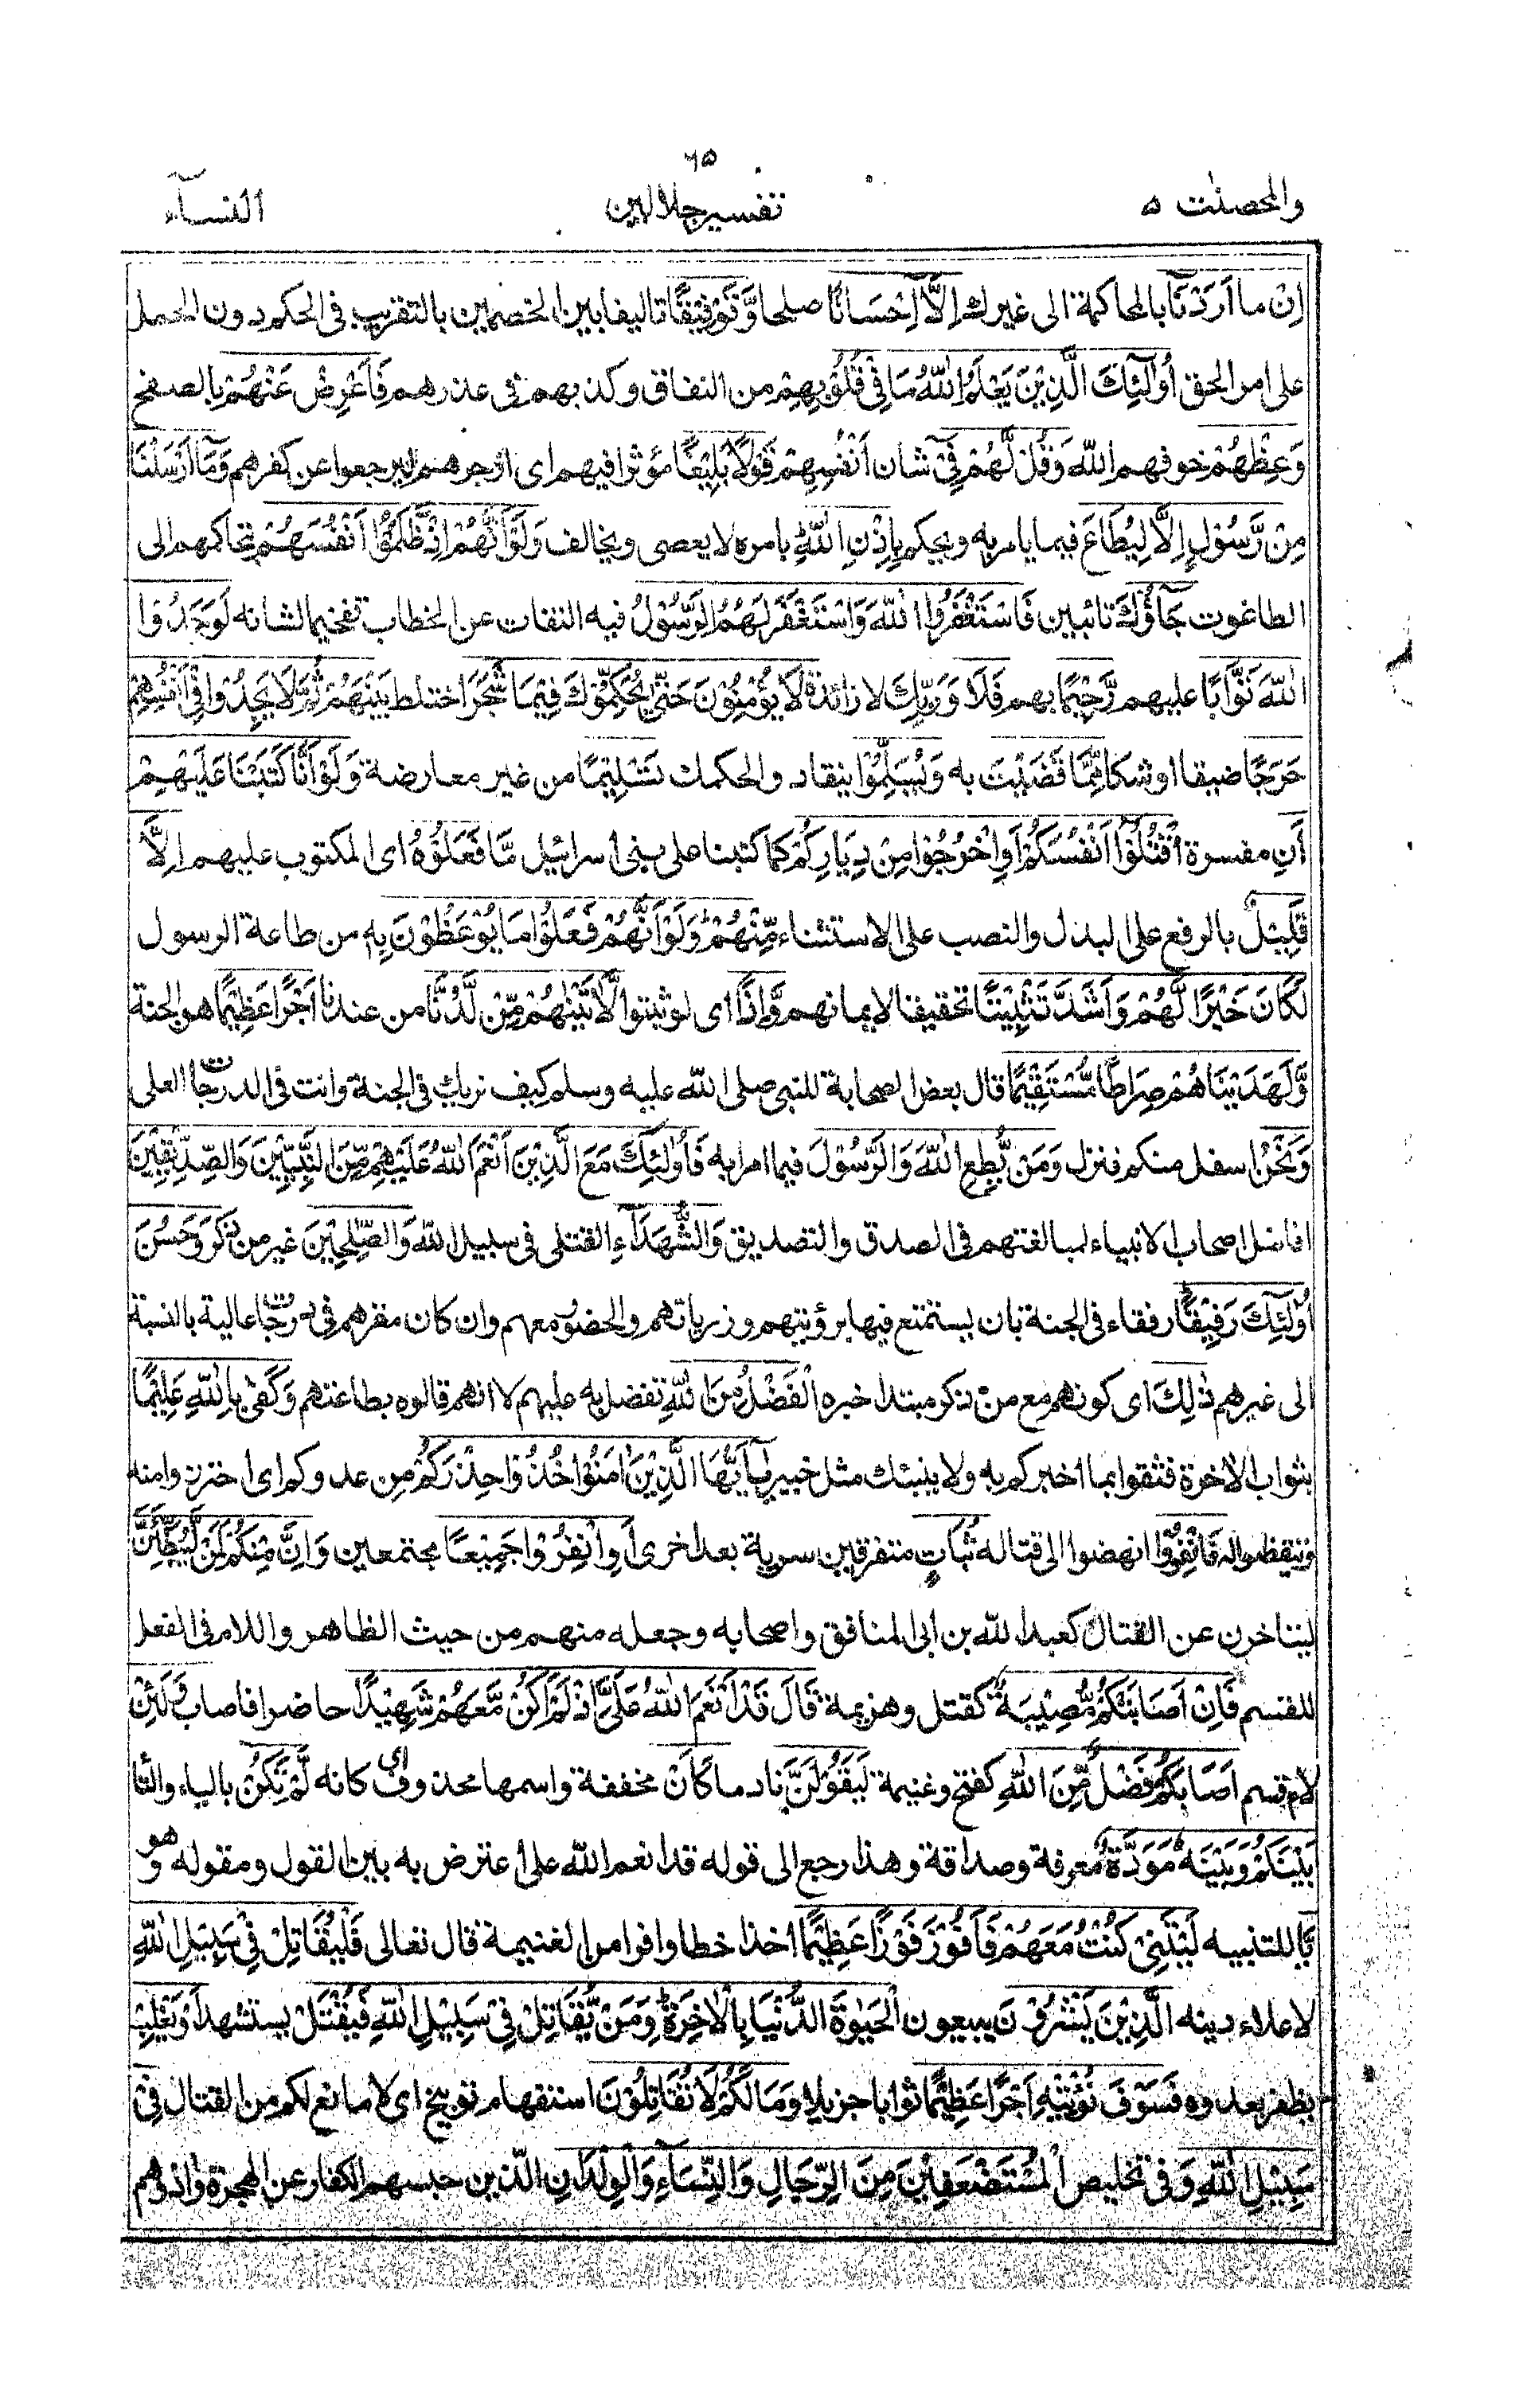 ٦٥
والمحصنٰت ٥ تفسير جلالين النسآء
اِنْ ما اَرَدْنَآ بالمحاكمة الى غيرك اِلَّآ اِحْسَانًا صلحا وَّتَوْفِيْقًا تاليفا بين الخصمين بالتقريب فى الحكم دون الحمل
على امر الحق اُولٰٓئِكَ الَّذِيْنَ يَعْلَمُ اللّٰهُ مَا فِيْ قُلُوْبِهِمْ من النفاق وكذبهم فى عذرهم فَاَعْرِضْ عَنْهُمْ بالصفح
وَعِظْهُمْ خوفهم الله وَقُلْ لَّهُمْ فِيْٓ شان اَنْفُسِهِمْ قَوْلًا بَلِيْغًا مؤثرا فيهم اى ازجرهم ليرجعوا عن كفرهم وَمَآ اَرْسَلْنَا
مِنْ رَّسُوْلٍ اِلَّا لِيُطَاعَ فيما يامر به ويحكم بِاِذْنِ اللّٰهِ بامره لا يعصى ويخالف وَلَوْ اَنَّهُمْ اِذْ ظَّلَمُوْٓا اَنْفُسَهُمْ بتحاكمهم الى
الطاغوت جَآؤُكَ تائبين فَاسْتَغْفَرُوا اللّٰهَ وَاسْتَغْفَرَ لَهُمُ الرَّسُوْلُ فيه التفات عن الخطاب تفخيما لشانه لَوَجَدُوا
اللّٰهَ تَوَّابًا عليهم رَّحِيْمًا بهم فَلَا وَرَبِّكَ لا زائدة لَا يُؤْمِنُوْنَ حَتّٰى يُحَكِّمُوْكَ فِيْمَا شَجَرَ اختلط بَيْنَهُمْ ثُمَّ لَا يَجِدُوْا فِيْٓ اَنْفُسِهِمْ
حَرَجًا ضيقا او شكا مِّمَّا قَضَيْتَ به وَيُسَلِّمُوْا ينقادوا لحكمك تَسْلِيْمًا من غير معارضة وَلَوْ اَنَّا كَتَبْنَا عَلَيْهِمْ
اَنِ مفسرة اقْتُلُوْٓا اَنْفُسَكُمْ اَوِ اخْرُجُوْا مِنْ دِيَارِكُمْ كما كتبنا على بنى اسرائيل مَّا فَعَلُوْهُ اى المكتوب عليهم اِلَّا
قَلِيْلٌ بالرفع على البدل والنصب على الاستثناء مِّنْهُمْ وَلَوْ اَنَّهُمْ فَعَلُوْا مَا يُوْعَظُوْنَ بِهٖ من طاعة الرسول
لَكَانَ خَيْرًا لَّهُمْ وَاَشَدَّ تَثْبِيْتًا تحقيقا لايمانهم وَّاِذًا اى لو ثبتوا لَّاٰتَيْنٰهُمْ مِّنْ لَّدُنَّا من عندنا اَجْرًا عَظِيْمًا هو الجنة
وَّلَهَدَيْنَاهُمْ صِرَاطًا مُّسْتَقِيْمًا قال بعض الصحابة للنبى صلى الله عليه وسلم كيف نريك فى الجنة وانت فى الدرجات العلى
وَنَحْنُ اسفل منكم فنزل وَمَنْ يُّطِعِ اللّٰهَ وَالرَّسُوْلَ فيما امرا به فَاُولٰٓئِكَ مَعَ الَّذِيْنَ اَنْعَمَ اللّٰهُ عَلَيْهِمْ مِّنَ النَّبِيّٖنَ وَالصِّدِّيْقِيْنَ
افاضل اصحاب الانبياء لمبالغتهم فى الصدق والتصديق وَالشُّهَدَآءِ القتلى فى سبيل الله وَالصّٰلِحِيْنَ غير من ذكر وَحَسُنَ
اُولٰٓئِكَ رَفِيْقًا رفقاء فى الجنة بان يستمتع فيها برؤيتهم وزيارتهم والحضور معهم وان كان مقرهم فى درجات عالية بالنسبة
الى غيرهم ذٰلِكَ اى كونهم مع من ذكر مبتدا خبره الْفَضْلُ مِنَ اللّٰهِ تفضل به عليهم لا انهم قالوه بطاعتهم وَكَفٰى بِاللّٰهِ عَلِيْمًا
بثواب الاخرة فثقوا بما اخبركم به ولا ينبئك مثل خبير يٰٓاَيُّهَا الَّذِيْنَ اٰمَنُوْا خُذُوْا حِذْرَكُمْ من عدوكم اى احترزوا منه
وتيقظوا له فَانْفِرُوْا انهضوا الى قتاله ثُبَاتٍ متفرقين سرية بعد اخرى اَوِ انْفِرُوْا جَمِيْعًا مجتمعين وَاِنَّ مِنْكُمْ لَمَنْ لَّيُبَطِّئَنَّ
ليتاخرن عن القتال كعبد الله بن ابى المنافق واصحابه وجعله منهم من حيث الظاهر واللام فى الفعل
للقسم فَاِنْ اَصَابَتْكُمْ مُّصِيْبَةٌ كقتل وهزيمة قَالَ قَدْ اَنْعَمَ اللّٰهُ عَلَيَّ اِذْ لَمْ اَكُنْ مَّعَهُمْ شَهِيْدًا حاضرا فاصاب وَلَئِنْ
لام قسم اَصَابَكُمْ فَضْلٌ مِّنَ اللّٰهِ كفتح وغنيمة لَيَقُوْلَنَّ نادما كَاَنْ مخففة واسمها محذوف اى كانه لَّمْ تَكُنْ بالياء والتا
بَيْنَكُمْ وَبَيْنَهٗ مَوَدَّةٌ معرفة وصداقة وهذا رجع الى قوله قد انعم الله على اعترض به بين القول ومقوله وهو
يَا للتنبيه لَيْتَنِيْ كُنْتُ مَعَهُمْ فَاَفُوْزَ فَوْزًا عَظِيْمًا اخذ حظا وافرا من الغنيمة قال تعالى فَلْيُقَاتِلْ فِيْ سَبِيْلِ اللّٰهِ
لاعلاء دينه الَّذِيْنَ يَشْرُوْنَ يبيعون الْحَيٰوةَ الدُّنْيَا بِالْاٰخِرَةِ وَمَنْ يُّقَاتِلْ فِيْ سَبِيْلِ اللّٰهِ فَيُقْتَلْ يستشهد اَوْ يَغْلِبْ
يظفر بعدوه فَسَوْفَ نُؤْتِيْهِ اَجْرًا عَظِيْمًا ثوابا جزيلا وَمَا لَكُمْ لَا تُقَاتِلُوْنَ استفهام توبيخ اى لا مانع لكم من القتال فِيْ
سَبِيْلِ اللّٰهِ وَ فى تخليص الْمُسْتَضْعَفِيْنَ مِنَ الرِّجَالِ وَالنِّسَآءِ وَالْوِلْدَانِ الذين حبسهم الكفار عن الهجرة واذوهم